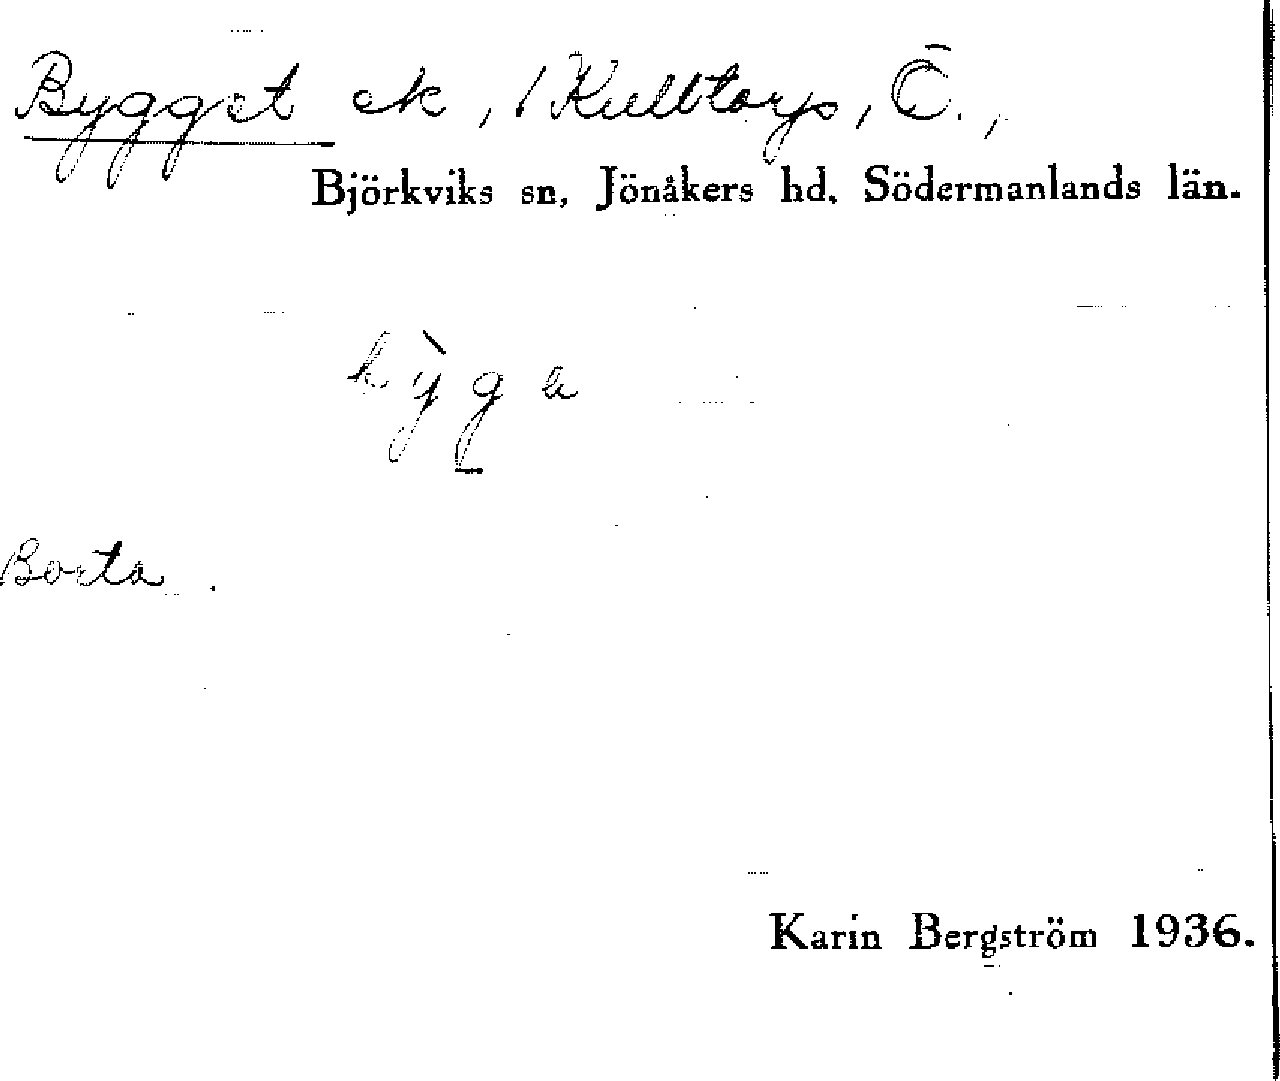 Bygget ek, /Kulltorp, Ö.,
Björkviks sn, Jönåkers hd, Södermanlands län.
bỳga
Borta.
Karin Bergström 1936.